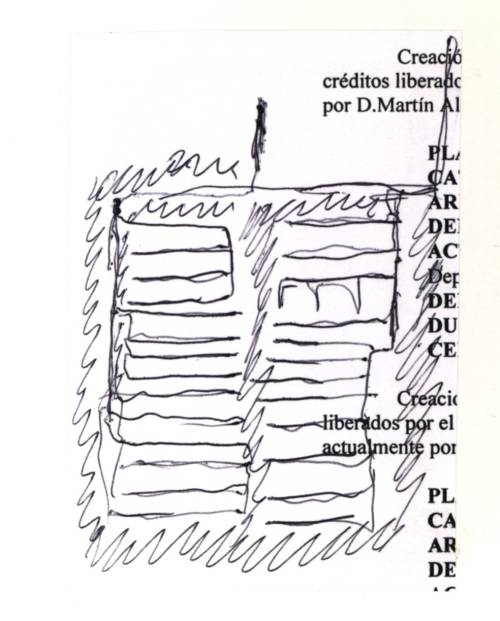 Creació
créditos liberado
por D.Martín Al
PLA
CA
AR
DE
AC
Dep
DE
DU
CE
Creacio
liberados por el
actualmente por
PL
CA
AR
DE